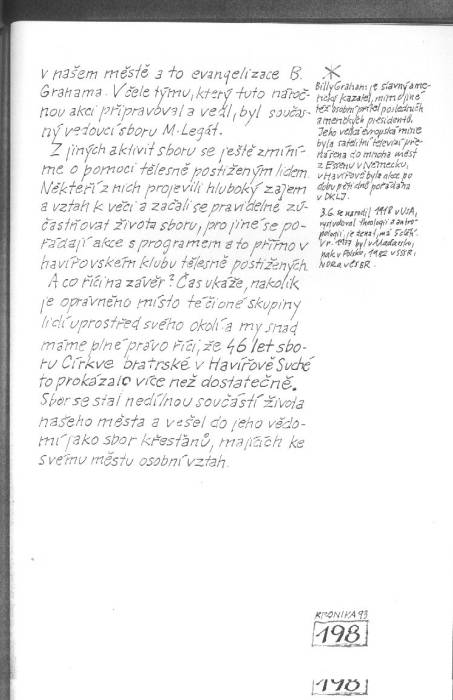 v našem městě a to evangelizace B.
Grahama. V čele týmu, který tuto nároč-
nou akci připravoval a vedl, byl součas-
ný vedoucí sboru M. Legát.
Z jiných aktivit sboru se ještě zmíní-
me o pomoci tělesně postiženým lidem.
Někteří z nich projevili hluboký zájem
a vztah k věci a začali se pravidelně zú-
častňovat života sboru, pro jiné se po-
řádají akce s programem a to přímo v
havířovském klubu tělesně postižených.
A co říci na závěr? Čas ukáže, nakolik
je oprávněno místo té či oné skupiny
lidí uprostřed svého okolí a my snad
máme plné právo říci, že 46 let sbo-
ru Církve bratrské v Havířově Suché
to prokázalo více než dostatečně.
Sbor se stal nedílnou součástí života
našeho města a vešel do jeho vědo-
mí jako sbor křesťanů, majících ke
svému městu osobní vztah.
Billy Graham je slavný ame-
rický kazatel, mimo jiné
též osobní přítel posledních
amerických presidentů.
Jeho velká evropská misie
byla satelitní televizí pře-
nášena do mnoha měst
z Essenu v Německu,
v Havířově byla akce po
dobu pěti dnů pořádána
v DKLJ.
B.G. se narodil 1918 v USA,
vystudoval theologii a antro-
pologii, je ženat, má 5 dětí.
V r. 1977 byl v Maďarsku,
pak v Polsku, 1982 v SSSR,
NDR a v ČSSR.
KRONIKA 93
198
198